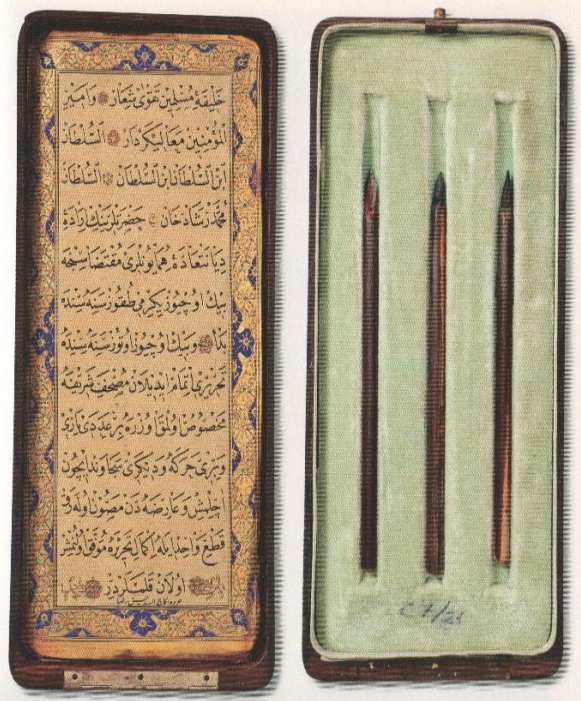 خليفۀ مسلمين تقوى شعار وامير
المؤمنين معاليكردار السلطان
ابن السلطان ابن السلطان السلطان
محمد رشاد خان حضرتلرينك اراده
ديانتعادۀ همايونلرى مقتضاسنجه
بيك اوچيوز يكرمى طقوز سنه سنده
بدأ وبيك اوچيوز اوتوز سنه سنده
تحريرى اتمام ايديلان مصحف شريفه
مخصوص اولمق اوزره بر عددى يازى
وبرى حركه وديكرى سجاوند ايچون
اچلمش وعارضه دن مصون اوله رق
قطع واحد ايله اكمال تحريره موفق اولنمش
اولان قلملردر